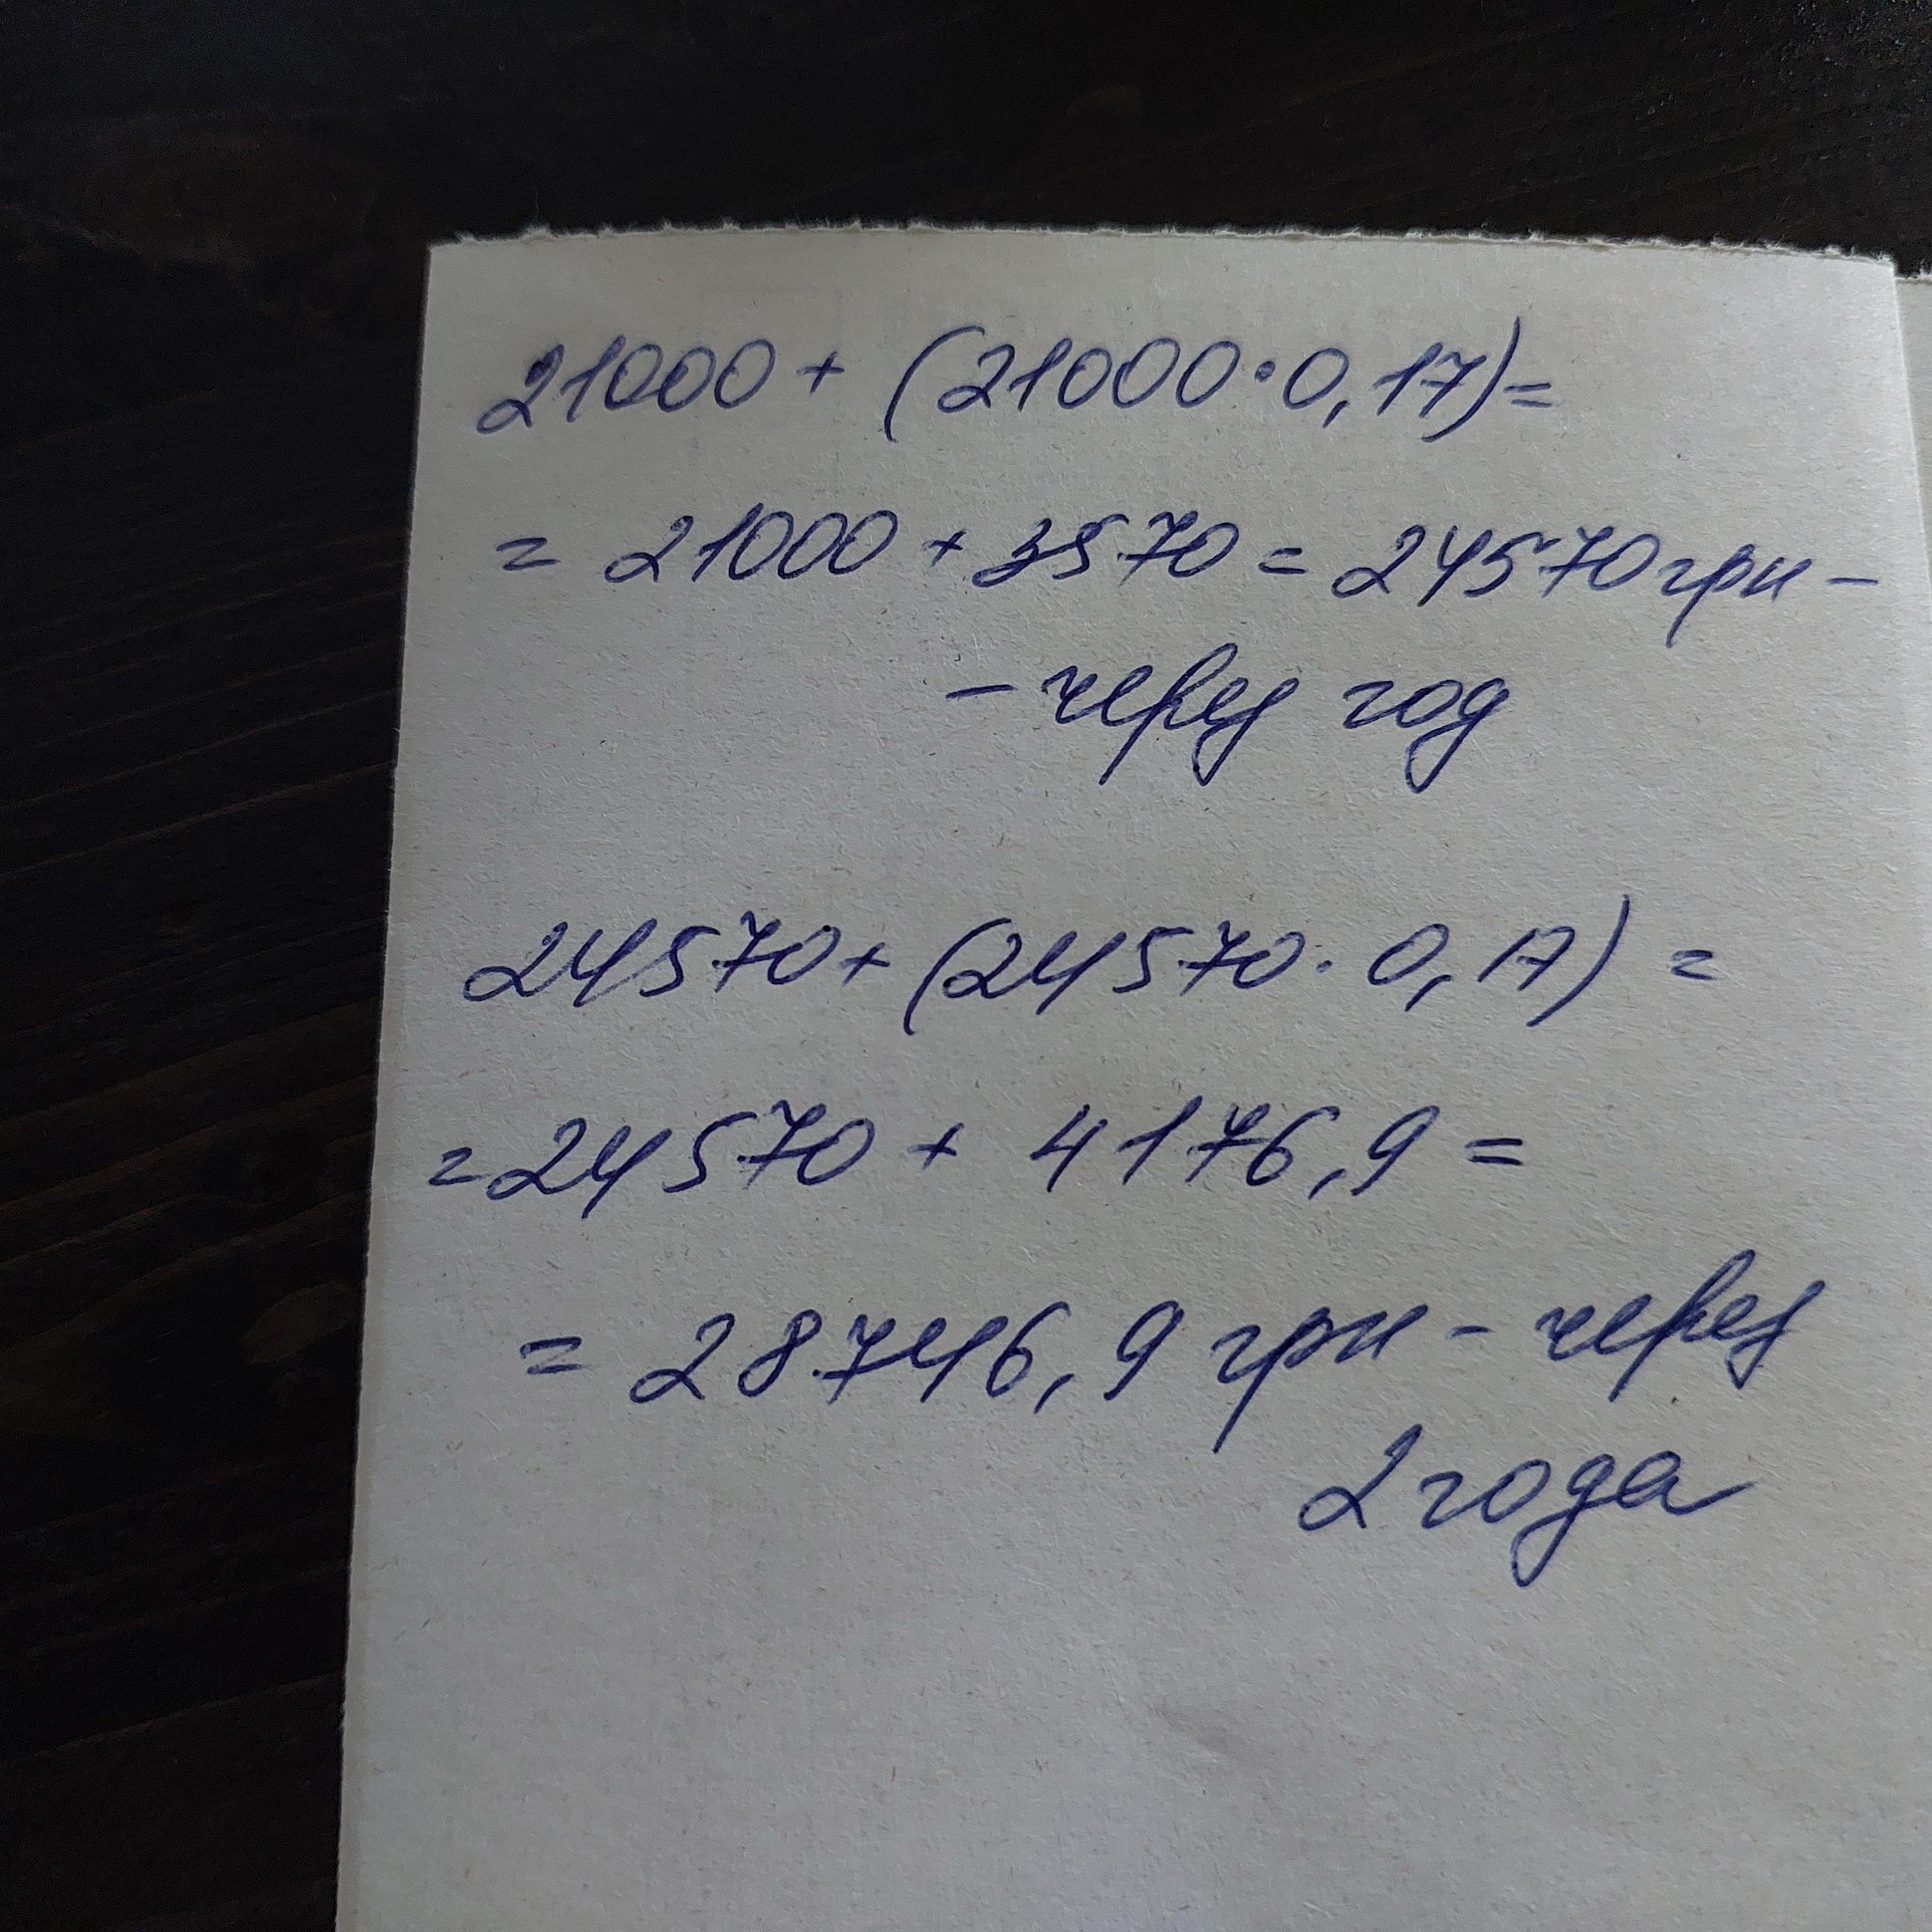 21000 + (21000 · 0,17) =
= 21000 + 3570 = 24570 грн –
– через год
24570 + (24570 · 0,17) =
= 24570 + 4176,9 =
= 28746,9 грн – через
2 года